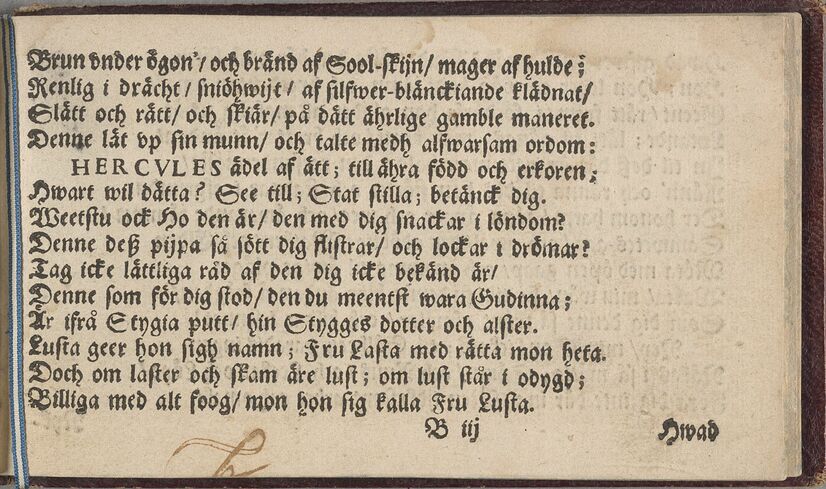 Brun vnder ögon/ och bränd af Sool-skijn/ mager af hulde;
Renlig i drächt/ sniöhwijt/ af silfwer-blänckiande klädnat/
Slätt och rätt/ och skiär/ på dätt ährlige gamble maneret.
Denne lät vp sin munn/ och talte medh alfwarsam ordom:
HERCVLES ädel af ätt; till ähra född och erkoren;
Hwart wil dätta? See till; Stat stilla; betänck dig.
Weetstu ock Ho den är/ den med dig snackar i löndom?
Denne deß pijpa så sött dig flistrar/ och lockar i drömar?
Tag icke lättliga råd af den dig icke bekänd är/
Denne som för dig stod/ den du meentst wara Gudinna;
Är ifrå Stygia putt/ hin Stygges dotter och alster.
Lusta geer hon sigh namn; Fru Lasta med rätta mon heta.
Doch om laster och skam äre lust; om lust står i odygd;
Billiga med alt foog/ mon hon sig kalla Fru Lusta.
B iij Hwad